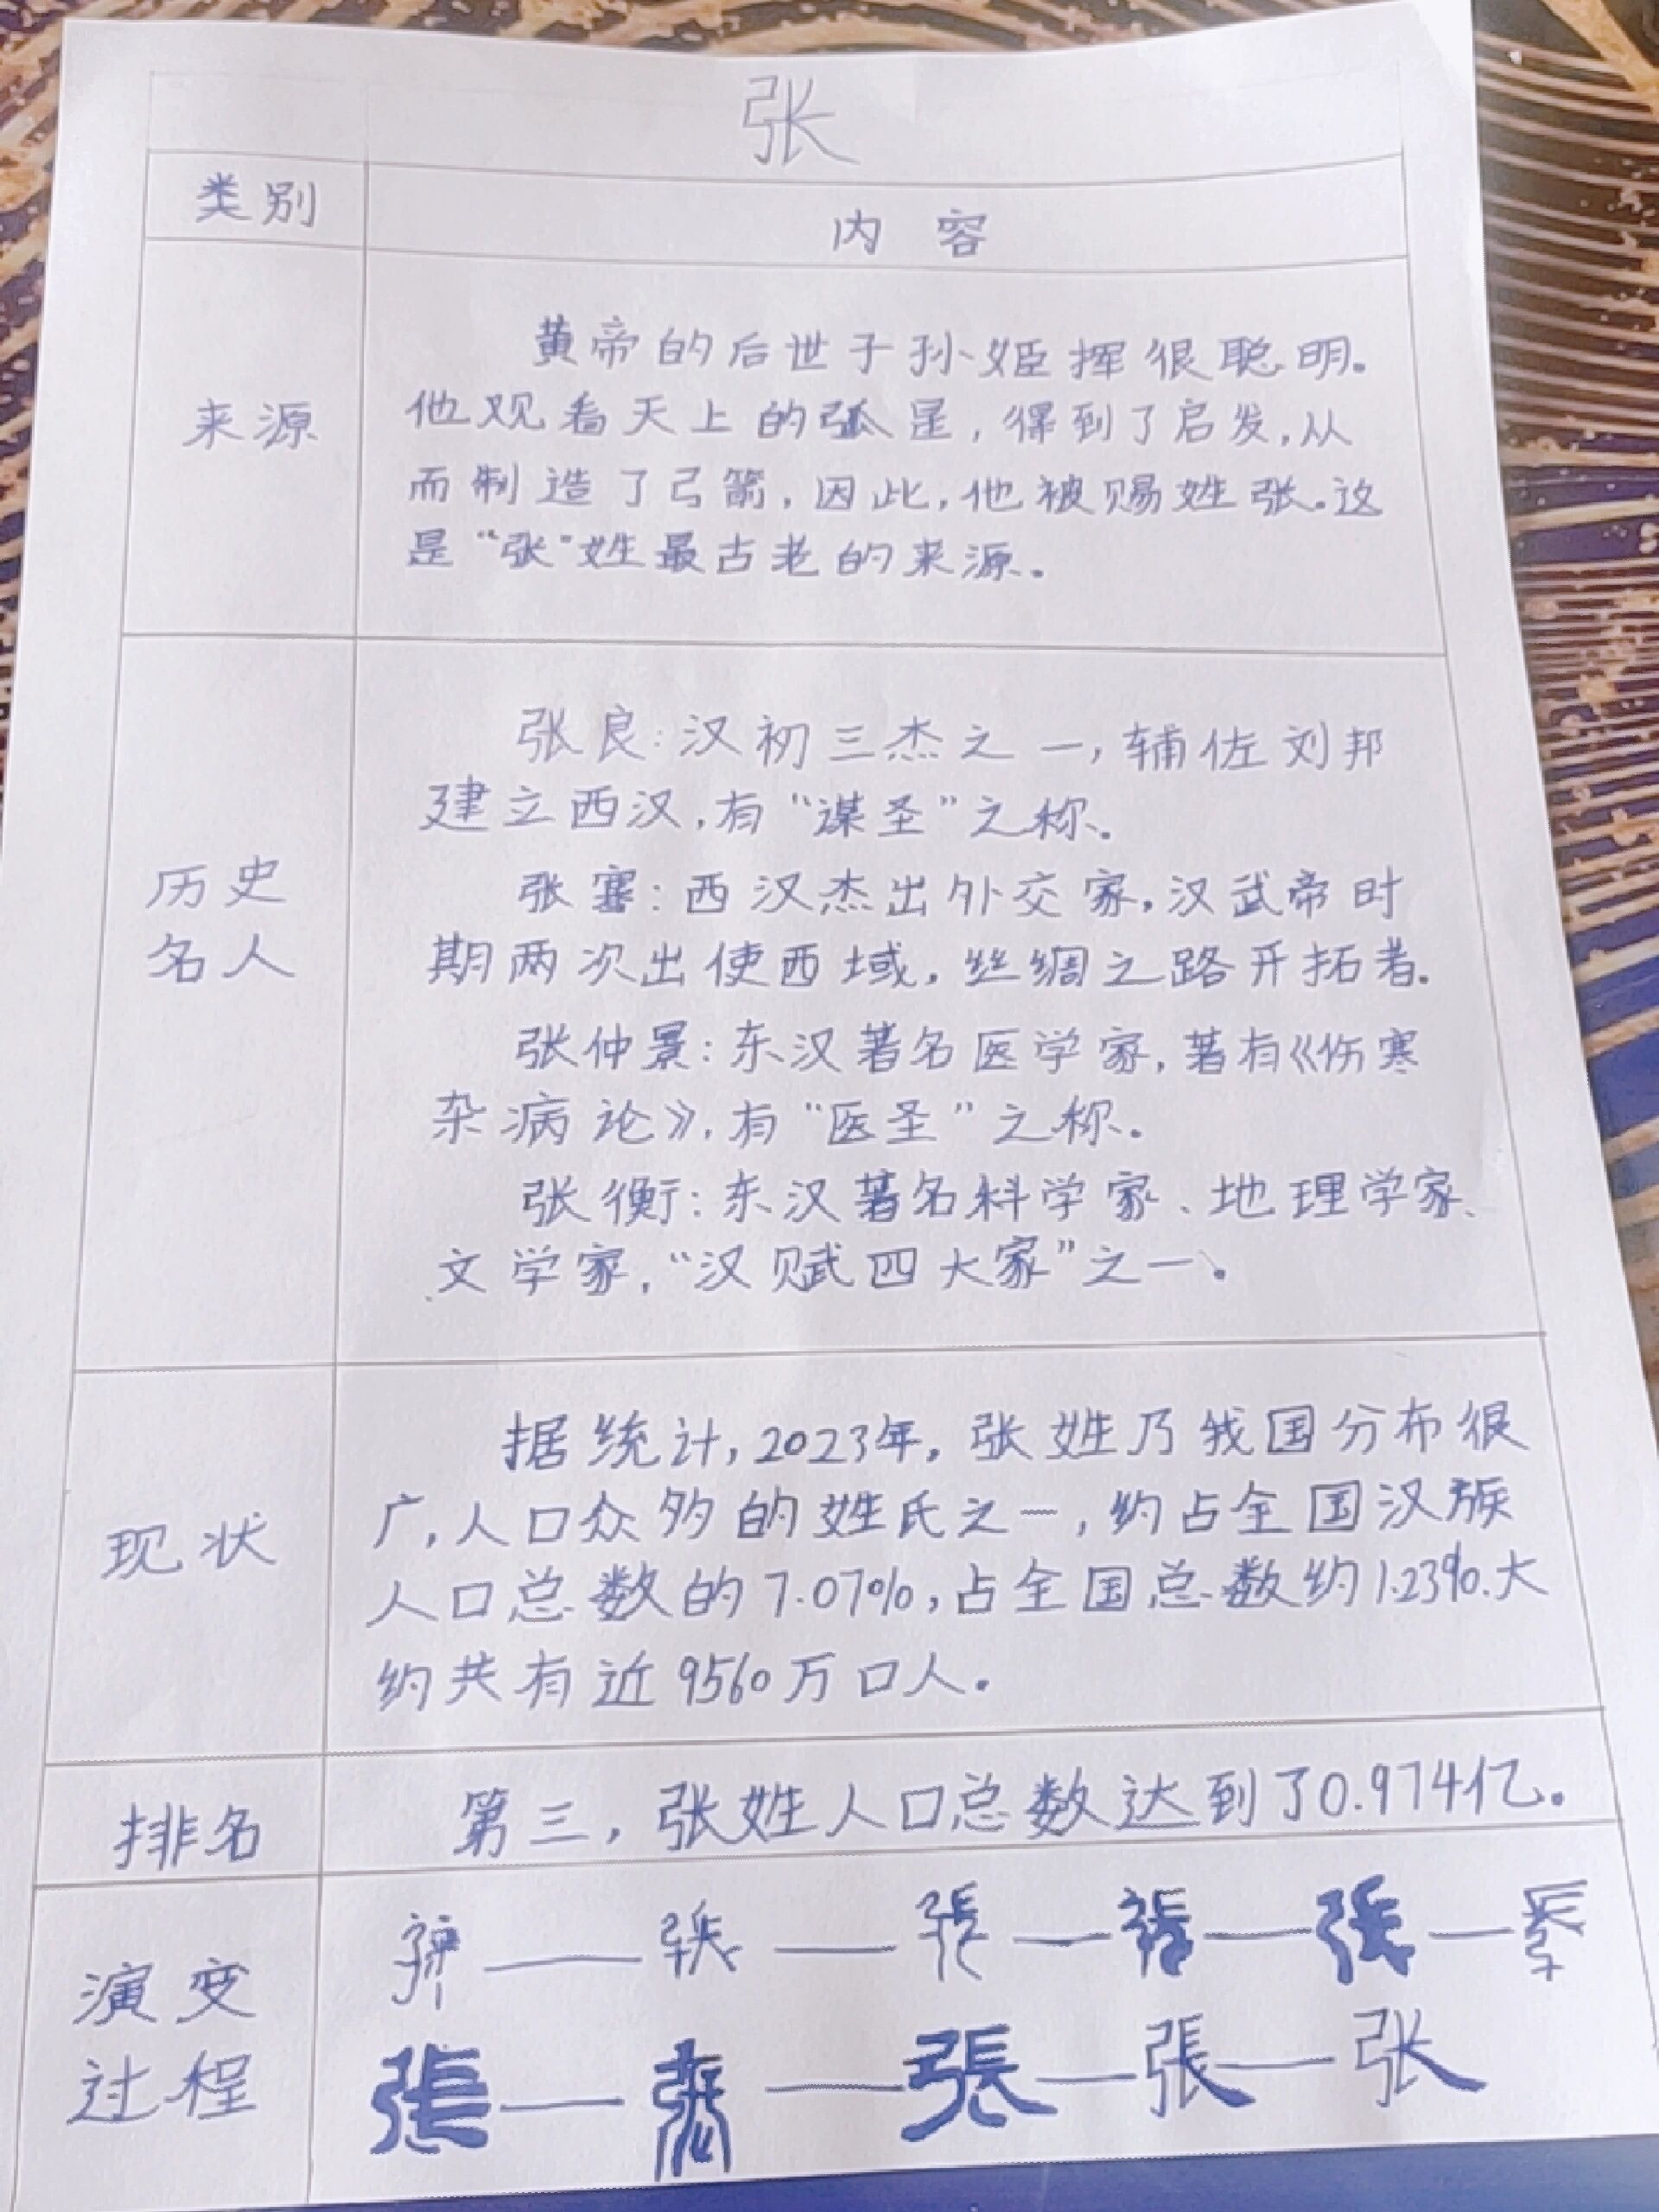 张
类别 内容
来源
黄帝的后世子孙姬挥很聪明.
他观看天上的弧星,得到了启发,从
而制造了弓箭,因此,他被赐姓张.这
是“张”姓最古老的来源.
历史
名人
张良:汉初三杰之一,辅佐刘邦
建立西汉,有“谋圣”之称.
张骞:西汉杰出外交家,汉武帝时
期两次出使西域,丝绸之路开拓者.
张仲景:东汉著名医学家,著有《伤寒
杂病论》,有“医圣”之称.
张衡:东汉著名科学家、地理学家、
文学家,“汉赋四大家”之一.
现状
据统计,2023年,张姓乃我国分布很
广,人口众多的姓氏之一,约占全国汉族
人口总数的7.07%,占全国总数约1.23%.大
约共有近9560万口人.
排名 第三,张姓人口总数达到了0.974亿.
演变
过程
張——張——張
張——張——张